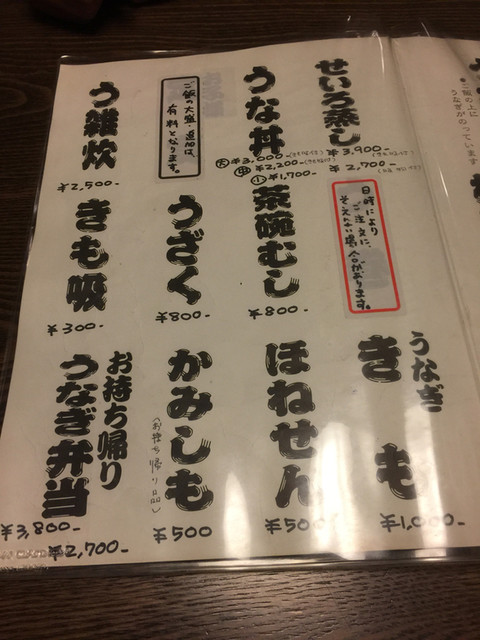 ●ご飯の上に
うなぎがのっています
せいろ蒸し
¥3,900-
¥2,700-
うな丼
大 ¥3,000-
中 ¥2,200-
小 ¥1,700-
ご飯の大盛・追加は、
有料となります。
う雑炊
¥2,500-
日時により
ご注文に、
そえない場合があります。
茶碗むし
¥800-
うざく
¥800-
きも吸
¥300-
うなぎ
きも
¥1,000-
ほねせん
¥500
かみしも
(お持ち帰り品)
¥500
お持ち帰り
うなぎ弁当
¥3,800-
¥2,700-